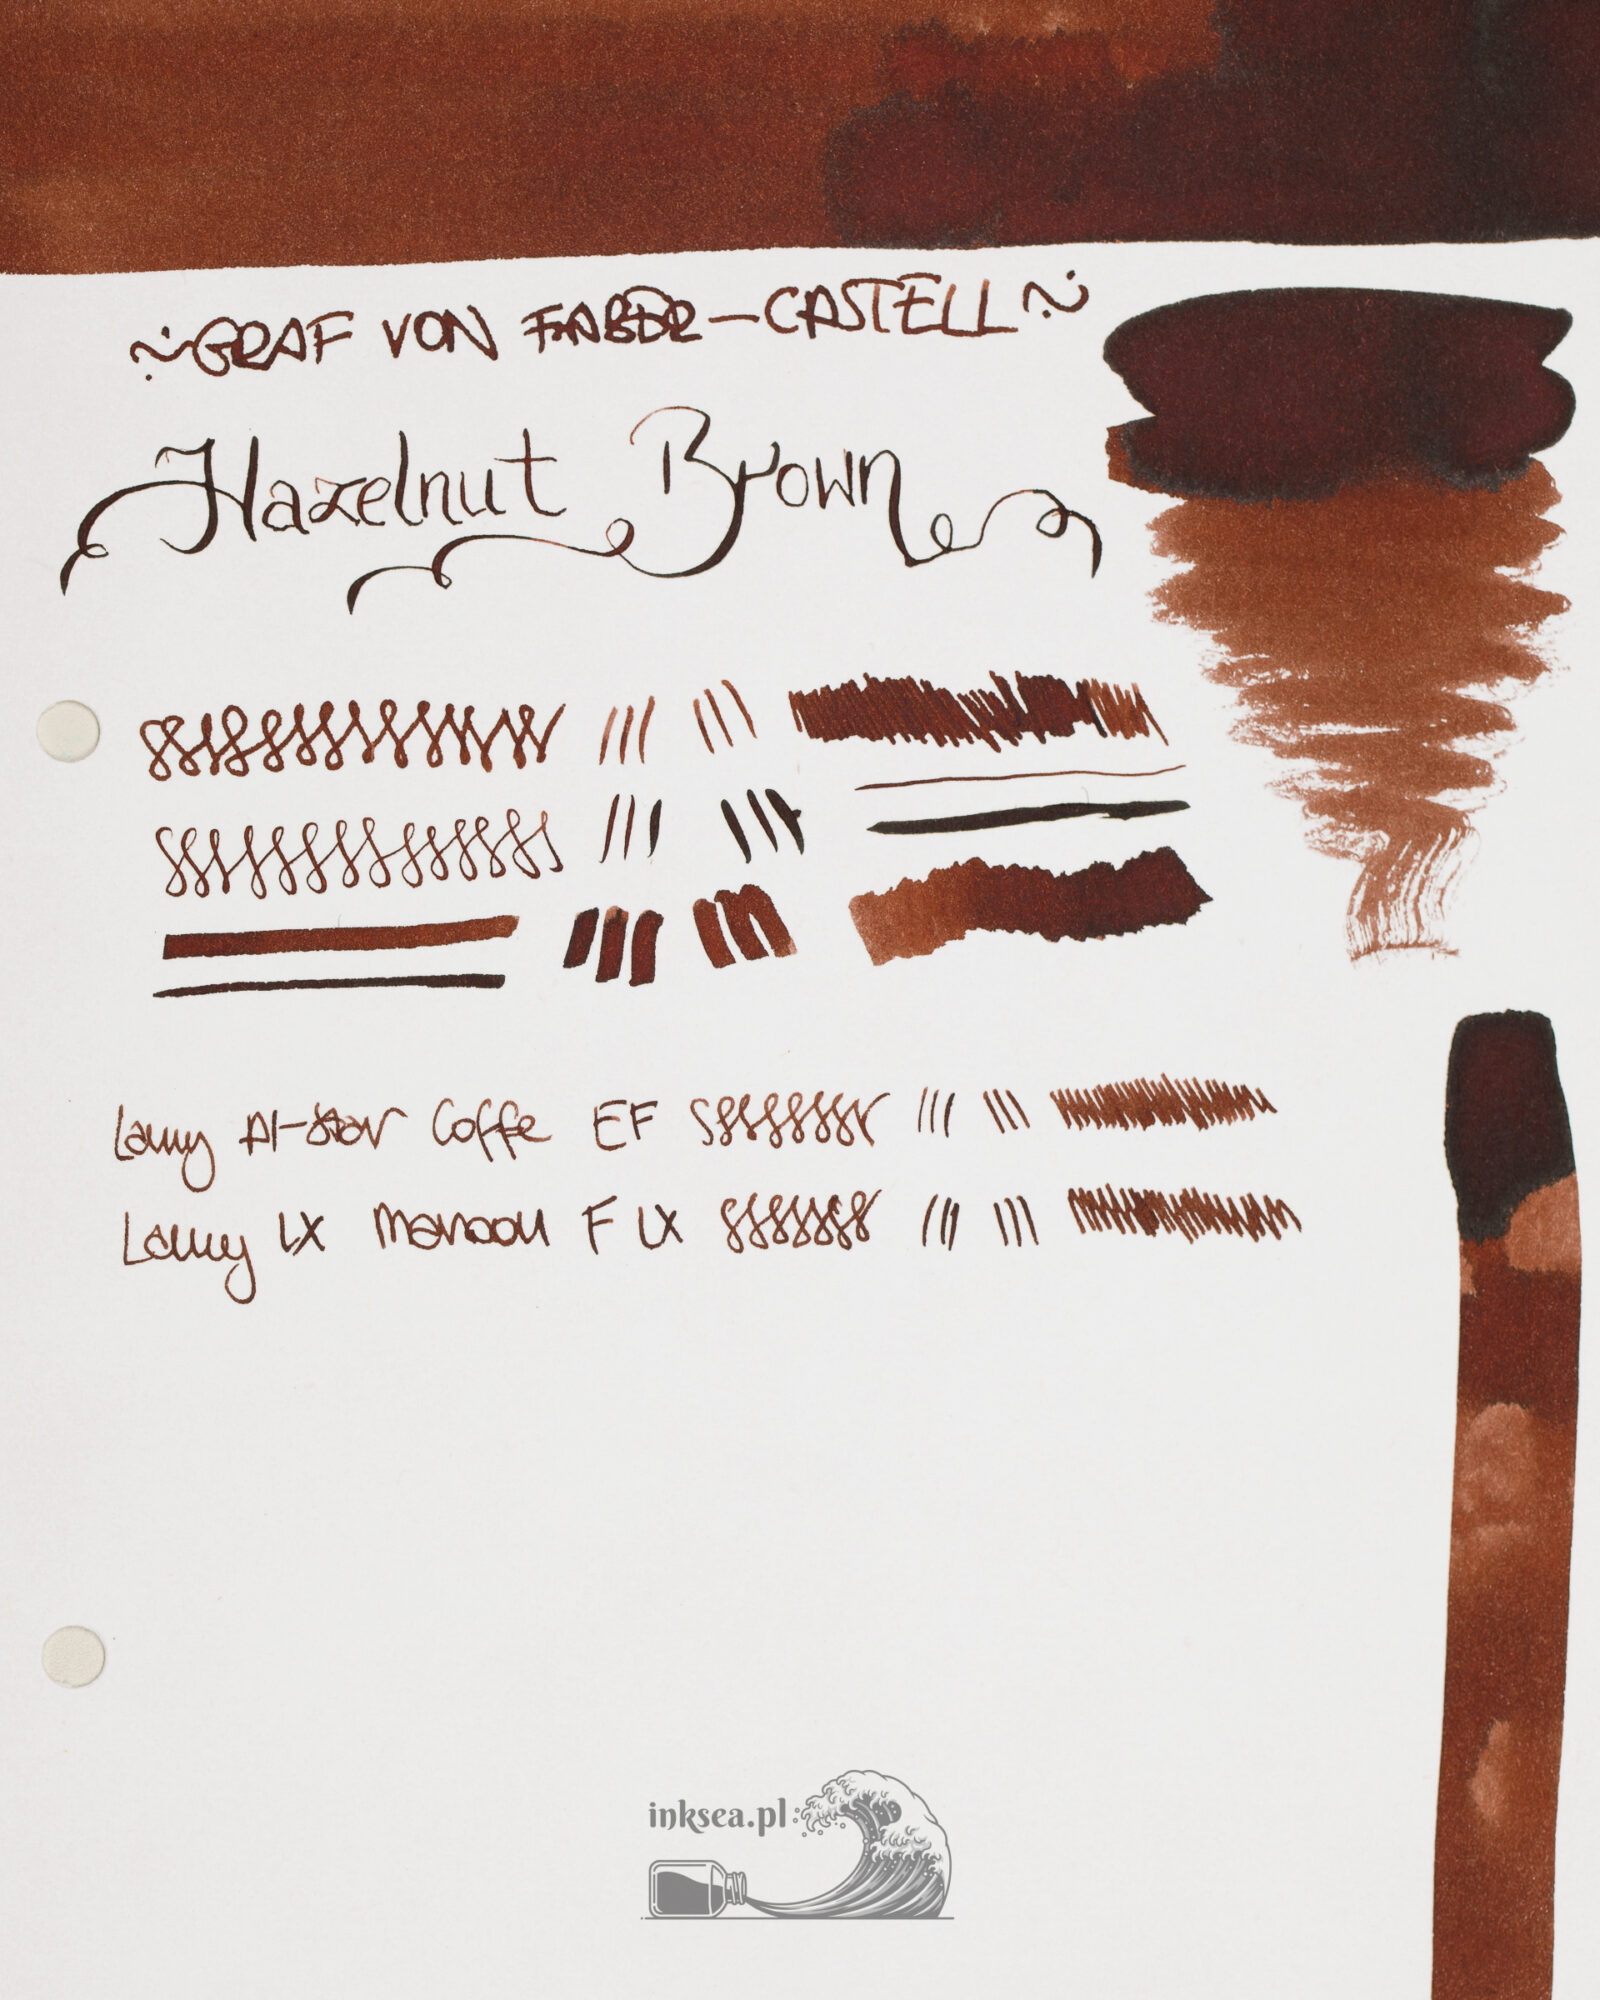 ~GRAF VON FABER-CASTELL~
Hazelnut Brown
Lamy Al-Star Coffe EF
Lamy LX Maroon F LX
inksea.pl